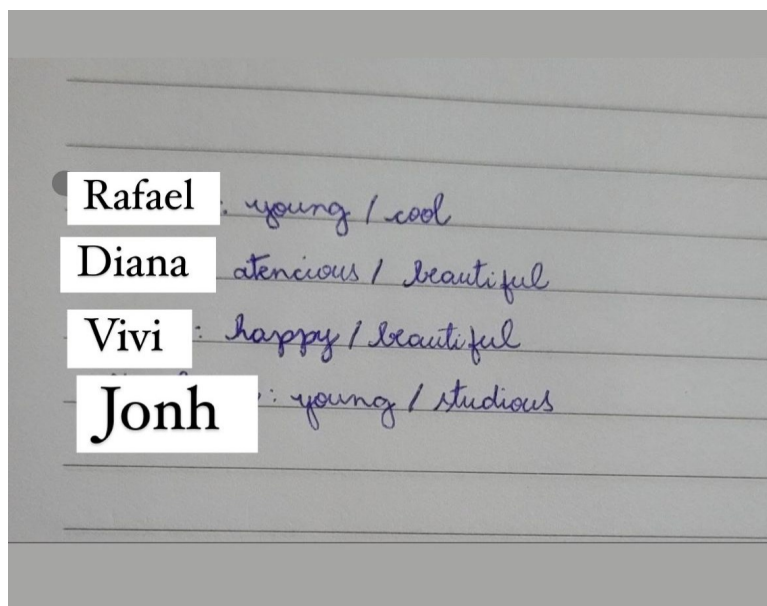 Rafael : young / cool
Diana atencious / beautiful
Vivi : happy / beautiful
Jonh : young / studious